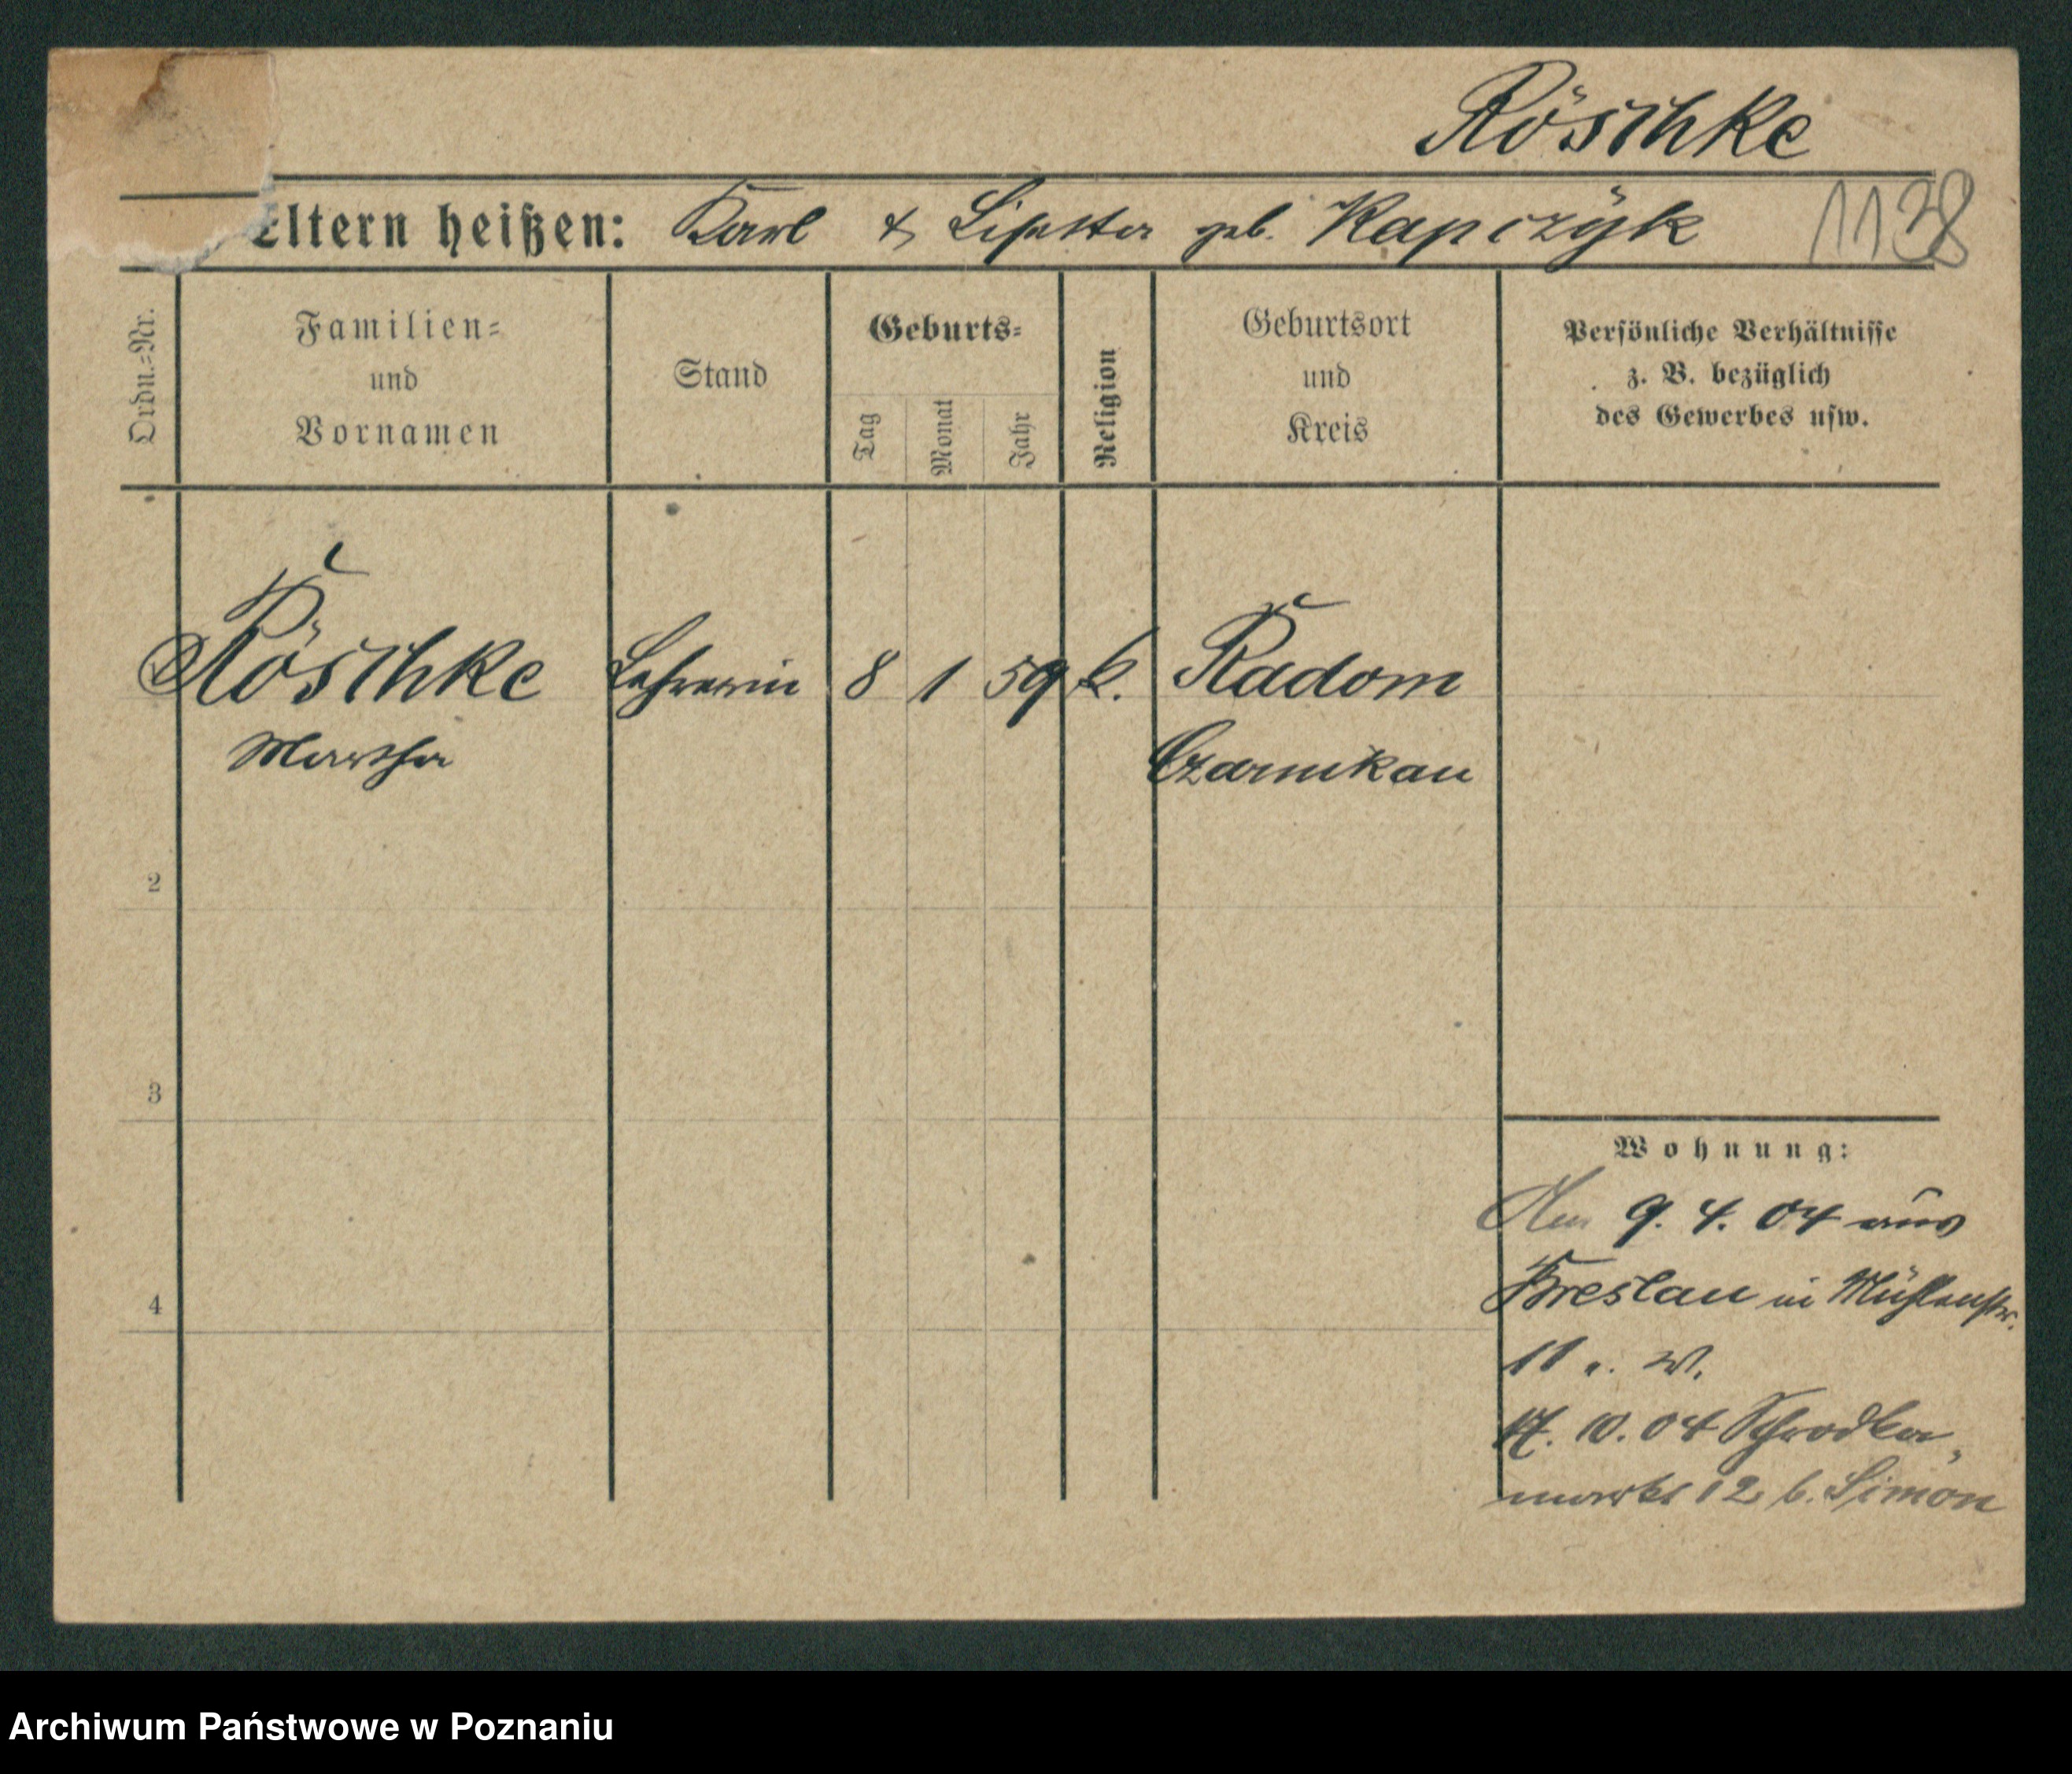 Röschke
Eltern heißen: Karl & Lisette geb. Kapczÿk 1138
Ordn.=Nr.
Familien=
und
Vornamen
Stand
Geburts=
Tag
Monat
Jahr
Religion
Geburtsort
und
Kreis
Persönliche Verhältnisse
z. B. bezüglich
des Gewerbes usw.
Röschke Lehrerin 8 1 59 k. Radom
Martha Czarnikau
2
3
4
Wohnung:
Am 9. 4. 04 aus
Breslau in Mühlenstr.
11 W.
10. 04 Schrodka
markt 12 b. Simon
Archiwum Państwowe w Poznaniu